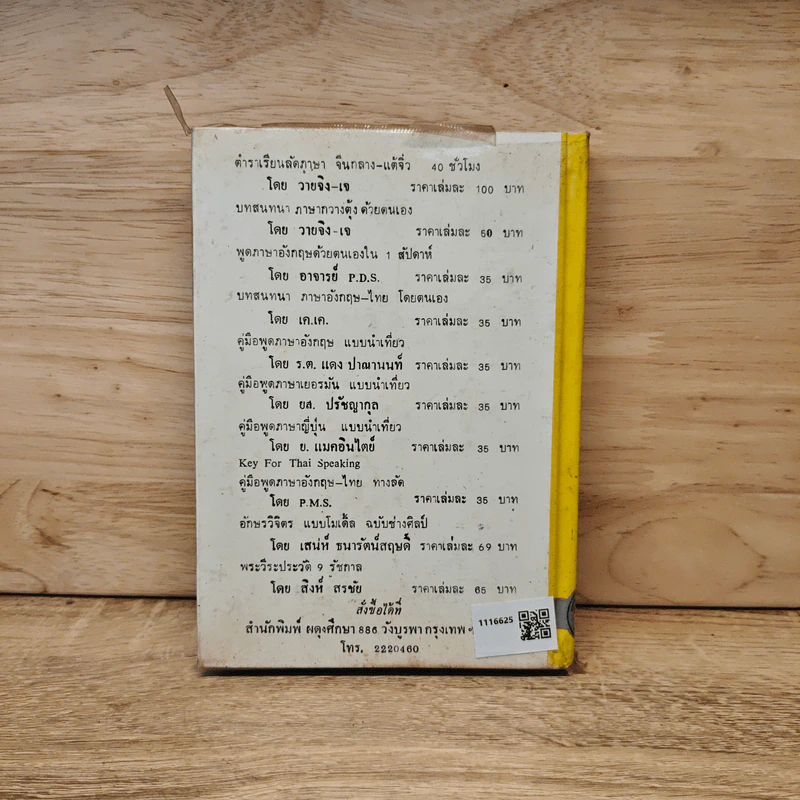 ตำราเรียนลัดภาษา จีนกลาง-แต้จิ๋ว 40 ชั่วโมง
โดย วายจิง-เจ ราคาเล่มละ 100 บาท
บทสนทนา ภาษากวางตุ้ง ด้วยตนเอง
โดย วายจิง-เจ ราคาเล่มละ 60 บาท
พูดภาษาอังกฤษด้วยตนเองใน 1 สัปดาห์
โดย อาจารย์ P.D.S. ราคาเล่มละ 35 บาท
บทสนทนา ภาษาอังกฤษ-ไทย โดยตนเอง
โดย เค.เค. ราคาเล่มละ 35 บาท
คู่มือพูดภาษาอังกฤษ แบบนำเที่ยว
โดย ร.ต. แดง ปาณานนท์ ราคาเล่มละ 35 บาท
คู่มือพูดภาษาเยอรมัน แบบนำเที่ยว
โดย ยส. ปรัชญากุล ราคาเล่มละ 35 บาท
คู่มือพูดภาษาญี่ปุ่น แบบนำเที่ยว
โดย ย. แมคอินไตย์ ราคาเล่มละ 35 บาท
Key For Thai Speaking
คู่มือพูดภาษาอังกฤษ-ไทย ทางลัด
โดย P.M.S. ราคาเล่มละ 35 บาท
อักษรวิจิตร แบบโมเดิ้ล ฉบับช่างศิลป์
โดย เสน่ห์ ธนารัตน์สฤษดิ์ ราคาเล่มละ 69 บาท
พระวีระประวัติ 9 รัชกาล
โดย สิงห์ สรชัย ราคาเล่มละ 65 บาท
สั่งซื้อได้ที่
สำนักพิมพ์ ผดุงศึกษา 886 วังบูรพา กรุงเทพ ฯ
โทร. 2220460
1116625